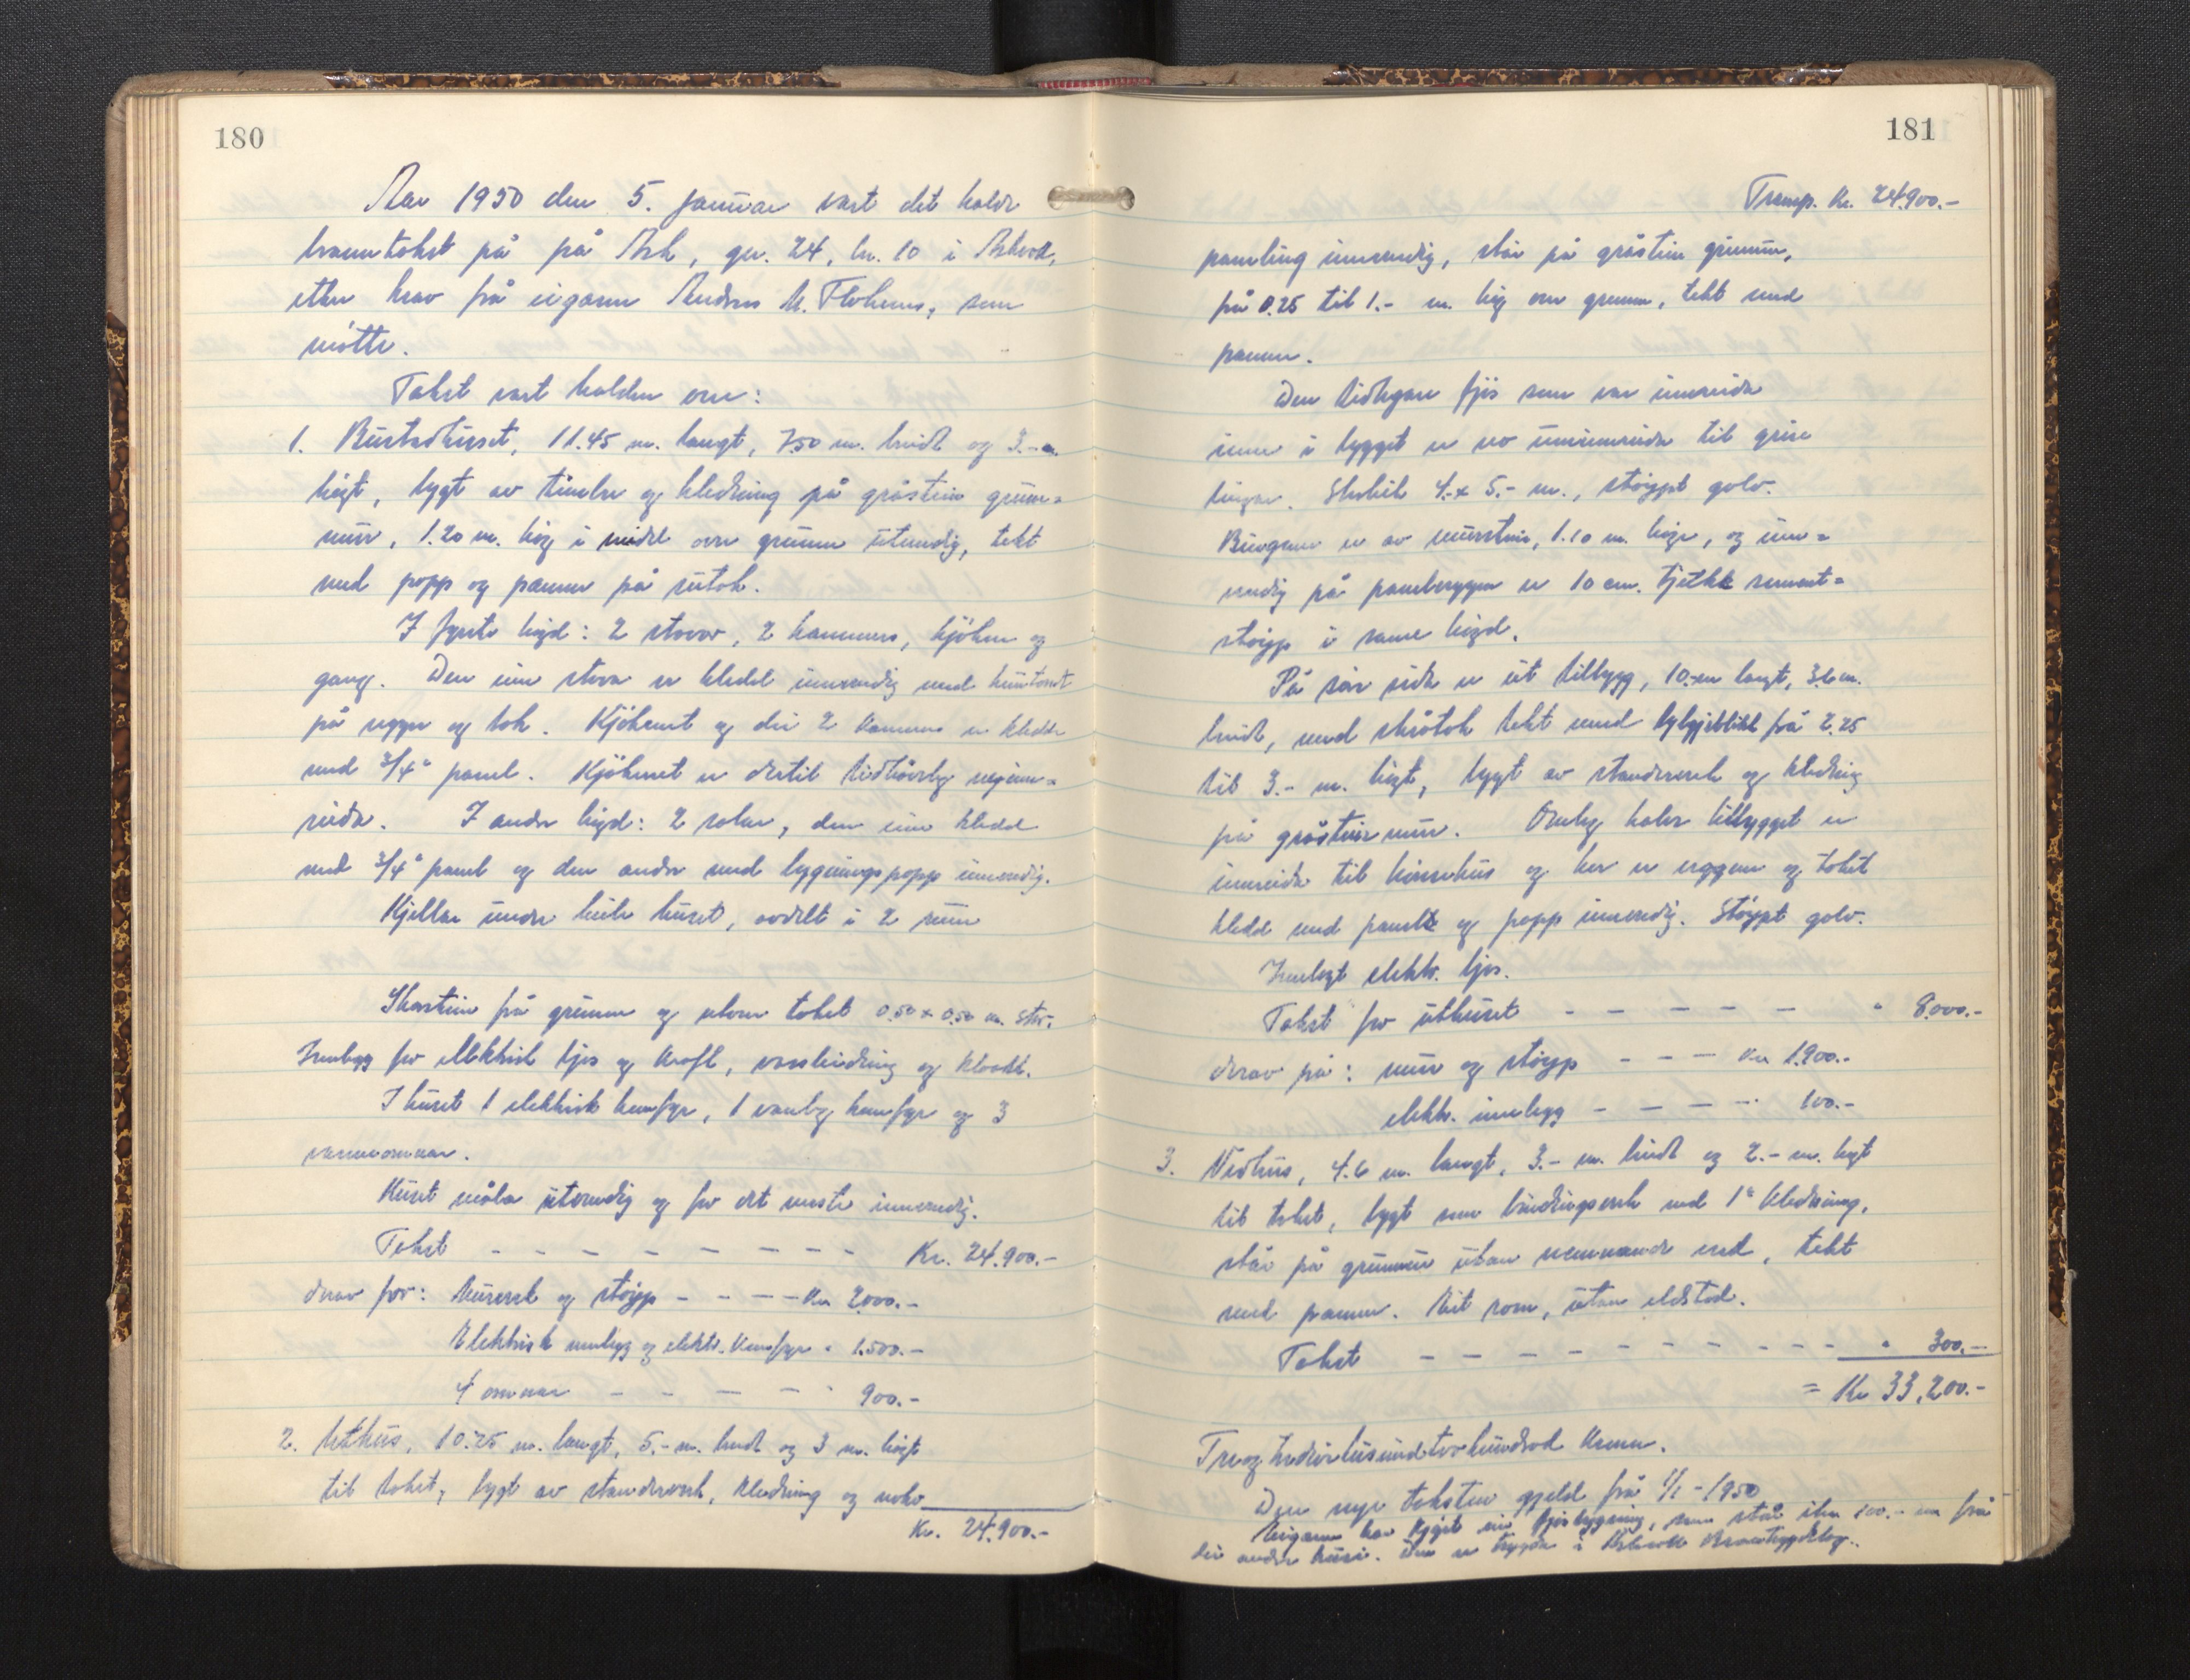 180
Aar 1950 den 5. januar vart det halde
branntakst på på Ask, gnr. 24, br. 10 i Askvoll,
etter krav frå eigaren Andreas M. Flokenes, som
møtte.
Takst vart halden over:
1. Bustadhuset, 11.45 m. langt, 7.50 m. breidt og 3.- m.
högt, bygt av tömber og kledning på gråstein grunn=
mur, 1.20 m. høg i midel over grunnen utvendig, tekt
med papp og panner på sutak.
I fyrste högd: 2 stover, 2 kammers, kjöken og
gang. Den eine stova er kledd innvendig med huntonit
på vegger og tak. Kjökenet og dei 2 kammers er kledde
med 3/4" panel. Kjökenet er dertil tidhøveleg nyinn=
reida. I andre högd: 2 rom, den eine kledd
med 3/4" panel og den andre med bygningspapp innvendig.
Kjellar under heile huset, avdelt i 2 rum
Skorstein frå grunnen og utover taket 0.50 x 0.50 m. stor.
Innlegg for elektrisk ljos og kraft, vassleidning og kloakk.
I huset 1 elektrisk komfyr, 1 vanleg komfyr og 3
varmeomnar.
Huset måla utvendig og for det meste innvendig.
Takst - - - - - - - - - Kr. 24.900.-
derav for: murverk og støyp - - - - Kr 2.000.-
Elektrisk innlegg og elektr. komfyr " 1.500.-
4 omnar - - - - - " 900.-
2. Uthus, 10.25 m. langt, 5.- m. breidt og 3 m. högt
til taket, bygt av standarverk, kledning og noko
Kr. 24.900.-
181
Transp. Kr. 24.900.-
paneling innvendig, står på gråstein grunnmur,
frå 0.25 til 1.- m. høg over grunnen, tekt med
panner.
Den tidlegare fjös som var innreida
inne i bygget er no uminnreida til grise
bingar. Storleik 4.- x 5.- m., støypt golv.
Bingane er av murstein, 1.10 m. høge, og inn=
vendig på panelveggen er 10 cm. tjukk sement=
støyp i same högd.
På eine sida er eit tilbygg, 10.- m langt, 3.6 m.
breidt, med skråtak tekt med bylgjeblikk frå 2.25
til 3.- m. högt, bygt av standerverk og kledning
på gråsteinsmur. Omleg halve tilbygget er
innreida til hönsehus og her er veggene og taket
kledd med panel og papp innvendig. Støypt golv.
Innlagt elektr. ljos.
Takst for uthuset - - - - - - " 8.000.-
derav på: mur og støyp - - - Kr 1.900.-
elektr. innlegg - - - - " 100.-
3. Vedhus, 4.6 m. langt, 3.- m. breidt og 2.- m. högt
til taket, bygt som bindingsverk med 1" kledning,
står på grunnmur utan nemnande verd, tekt
med panner. Eit rom, utan eldstad.
Takst - - - - - - - - - - " 300.-
= Kr 33.200.-
Treogtredivetusundtvohundrad kroner.
Den nye taksten gjeld frå 1/1 - 1950
Eigaren har kjøpt ein fjösbygning, som står ikr 100.- m frå
dei andre husi. Den er trygda i Askvoll Branntrygdelag.